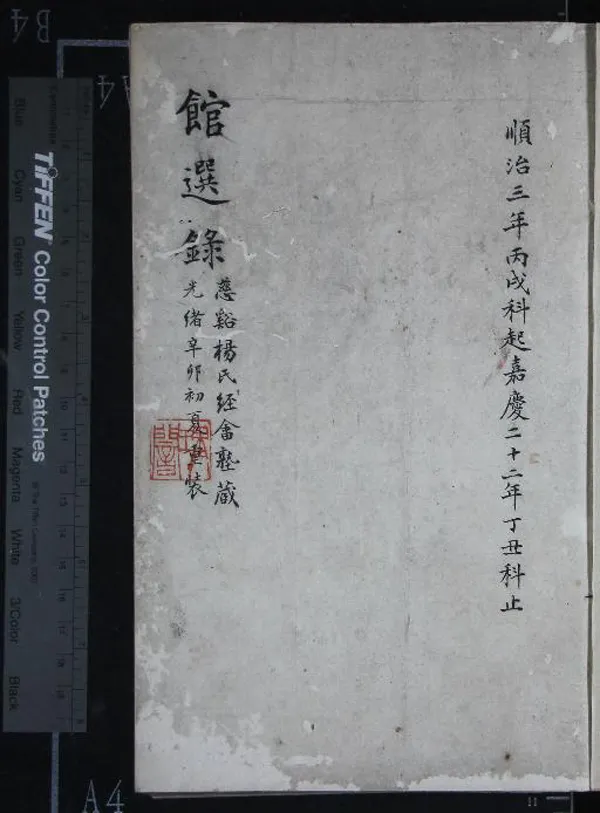 順治三年丙戌科起嘉慶二十二年丁丑科止
館選錄
慈谿楊氏經畬塾藏
光緒辛卯初夏重裝
B4
A4
A4
TIFFEN Color Control Patches
Blue
Cyan
Green
Yellow
Red
Magenta
White
3/Color
Black